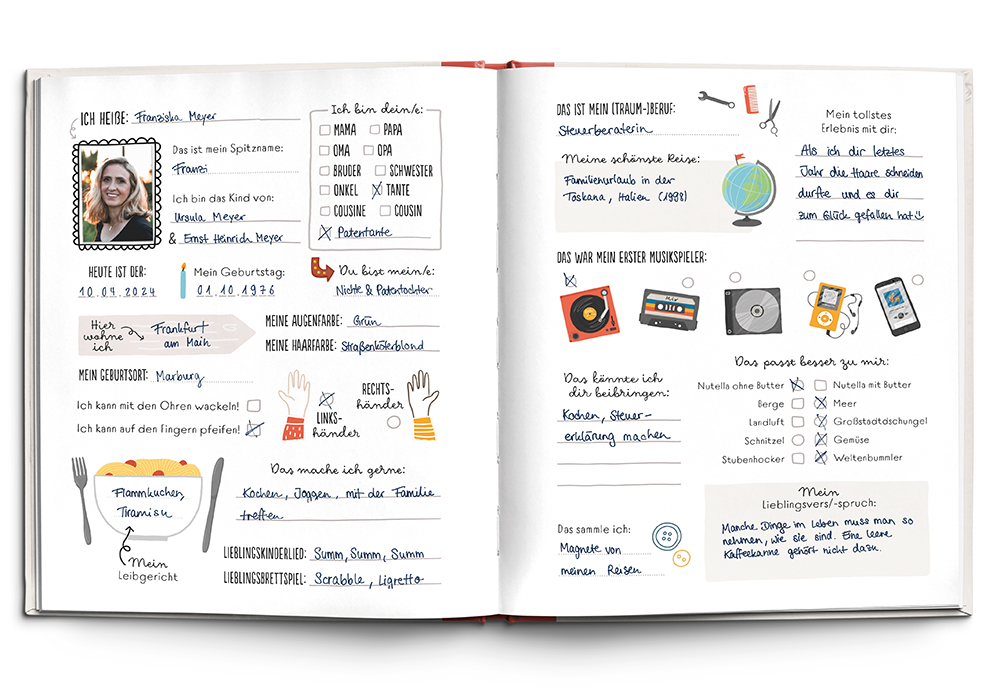 ICH HEIẞE: Franziska Meyer
Das ist mein Spitzname:
Franzi
Ich bin das Kind von:
Ursula Meyer
& Ernst Heinrich Meyer
Ich bin dein/e:
MAMA PAPA
OMA OPA
BRUDER SCHWESTER
ONKEL TANTE
COUSINE COUSIN
Patentante
HEUTE IST DER:
10.04.2024
Mein Geburtstag:
01.10.1976
Du bist mein/e:
Nichte & Patentochter
Hier wohne ich
Frankfurt
am Main
MEINE AUGENFARBE: Grün
MEINE HAARFARBE: Straßenköterblond
MEIN GEBURTSORT: Marburg
Ich kann mit den Ohren wackeln!
Ich kann auf den Fingern pfeifen!
LINKS-
händer
RECHTS-
händer
Flammkuchen,
Tiramisu
Mein
Leibgericht
Das mache ich gerne:
Kochen, Joggen, mit der Familie
treffen
LIEBLINGSKINDERLIED: Summ, Summ, Summ
LIEBLINGSBRETTSPIEL: Scrabble, Ligretto
DAS IST MEIN (TRAUM-)BERUF:
Steuerberaterin
Meine schönste Reise:
Familienurlaub in der
Toskana, Italien (1998)
Mein tollstes
Erlebnis mit dir:
Als ich dir letztes
Jahr die Haare schneiden
durfte und es dir
zum Glück gefallen hat
DAS WAR MEIN ERSTER MUSIKSPIELER:
MIX
Das könnte ich
dir beibringen:
Kochen, Steuer-
erklärung machen
Das passt besser zu mir:
Nutella ohne Butter Nutella mit Butter
Berge Meer
Landluft Großstadtdschungel
Schnitzel Gemüse
Stubenhocker Weltenbummler
Das sammle ich:
Magnete von
meinen Reisen
Mein
Lieblingsvers/-spruch:
Manche Dinge im Leben muss man so
nehmen, wie sie sind. Eine leere
Kaffeekanne gehört nicht dazu.